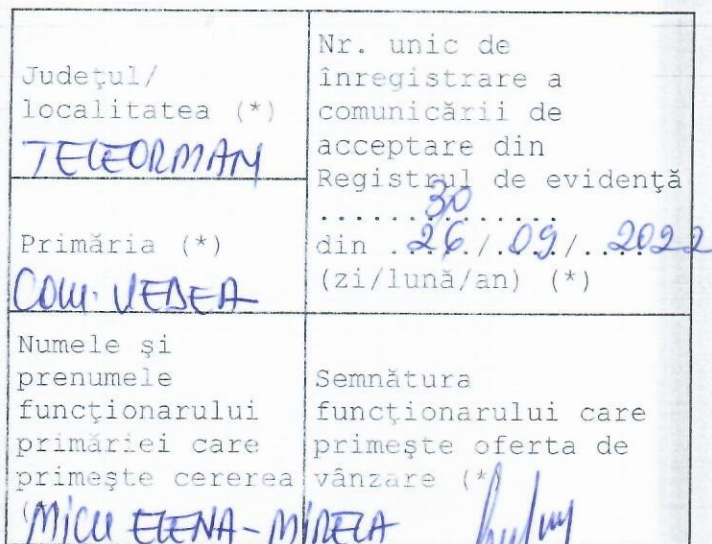 Județul/
localitatea (*)
TELEORMAN
Nr. unic de
înregistrare a
comunicării de
acceptare din
Registrul de evidență
......30......
din .26./.09./.2022
(zi/lună/an) (*)
Primăria (*)
COM. VEDEA
Numele și
prenumele
funcționarului
primăriei care
primește cererea
(*)
MICU ELENA-MIRELA
Semnătura
funcționarului care
primește oferta de
vânzare (*)